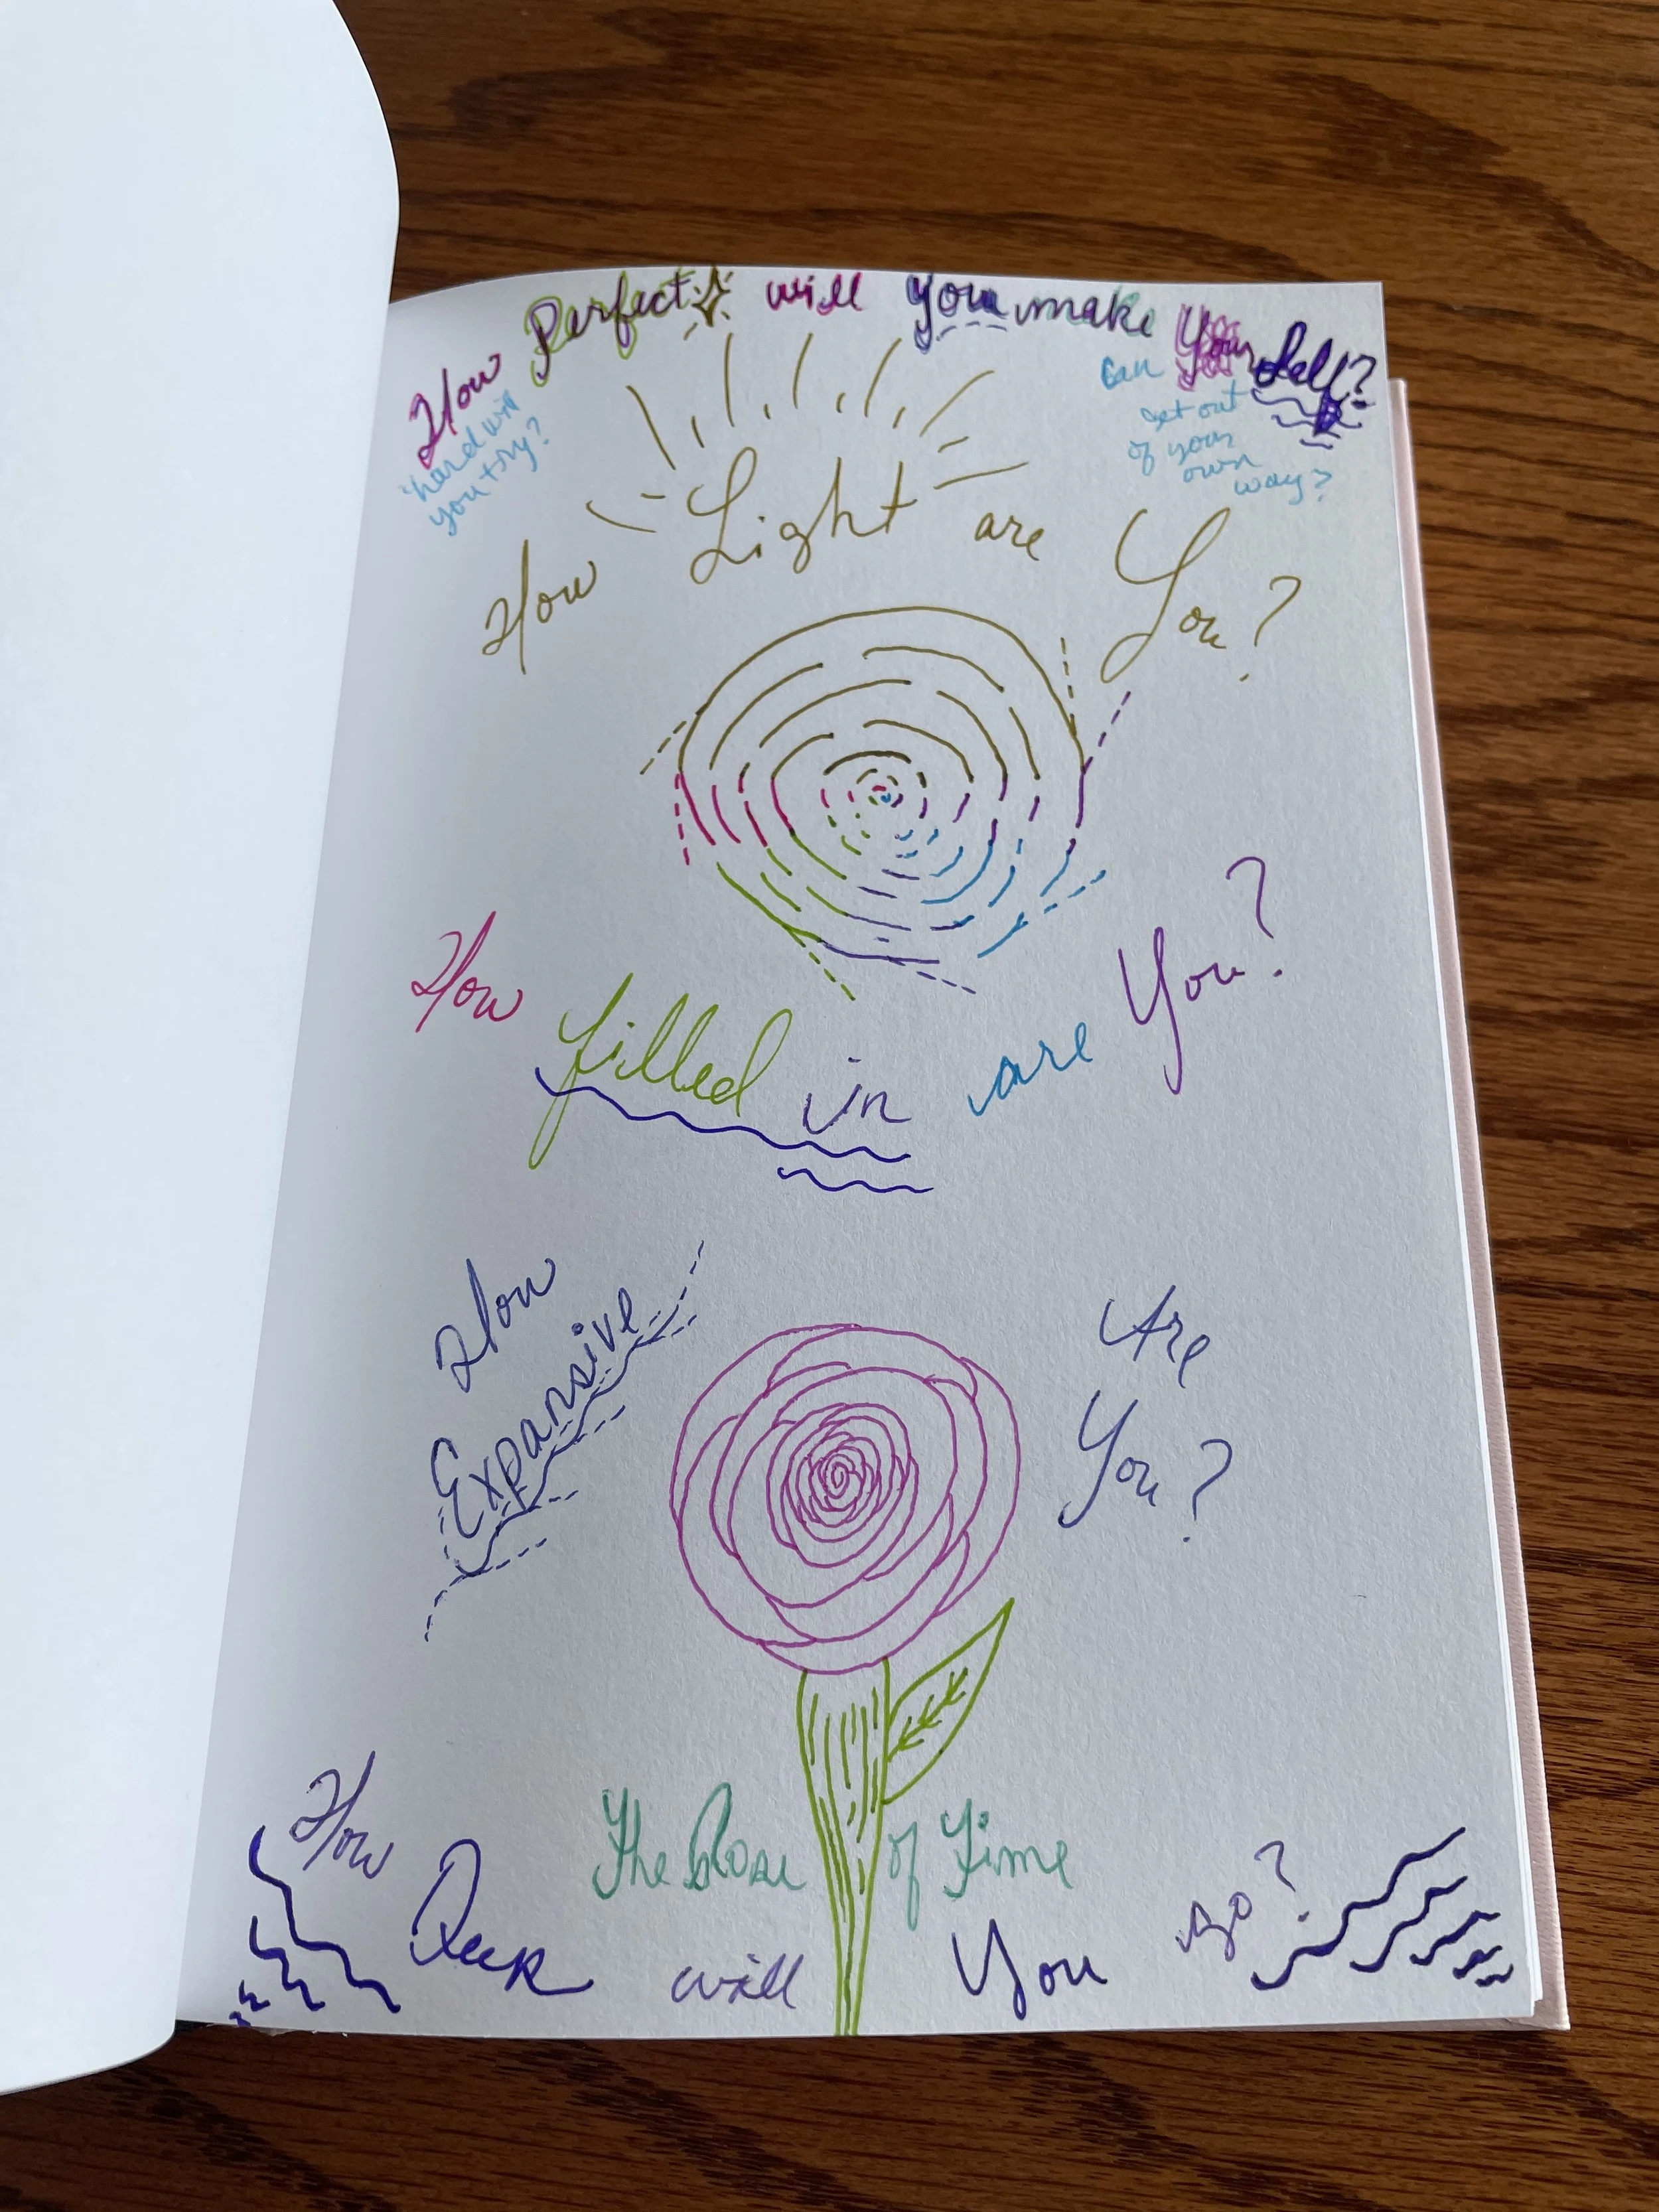 How Perfect will you make Your Self?
hard will
you try?
Can
get out
of your
own
way?
How Light are You?
How filled in are You?
How
Expansive
Are
You?
The Rose of Time
How Deep will You go?